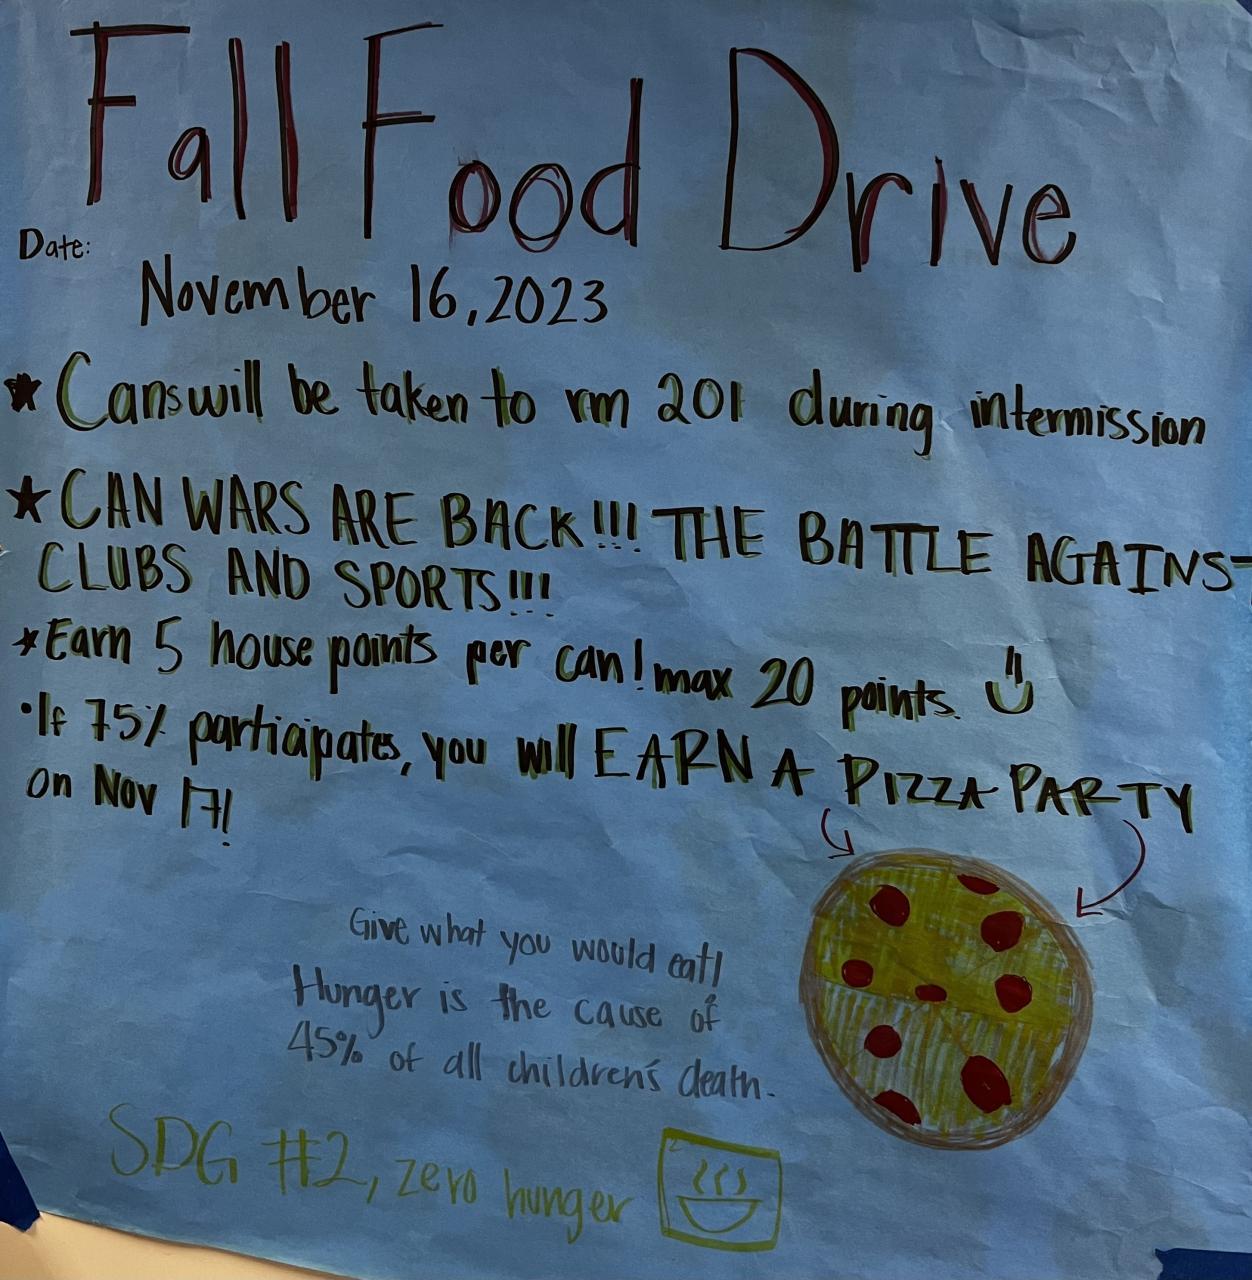 Fall Food Drive
Date:
November 16, 2023
★ Cans will be taken to rm 201 during intermission
★ CAN WARS ARE BACK!!! THE BATTLE AGAINST
CLUBS AND SPORTS!!!
★ Earn 5 house points per can! max 20 points.
• If 75% participates, you will EARN A PIZZA PARTY
on Nov 17!
Give what you would eat!
Hunger is the cause of
45% of all children's death.
SDG #2, zero hunger